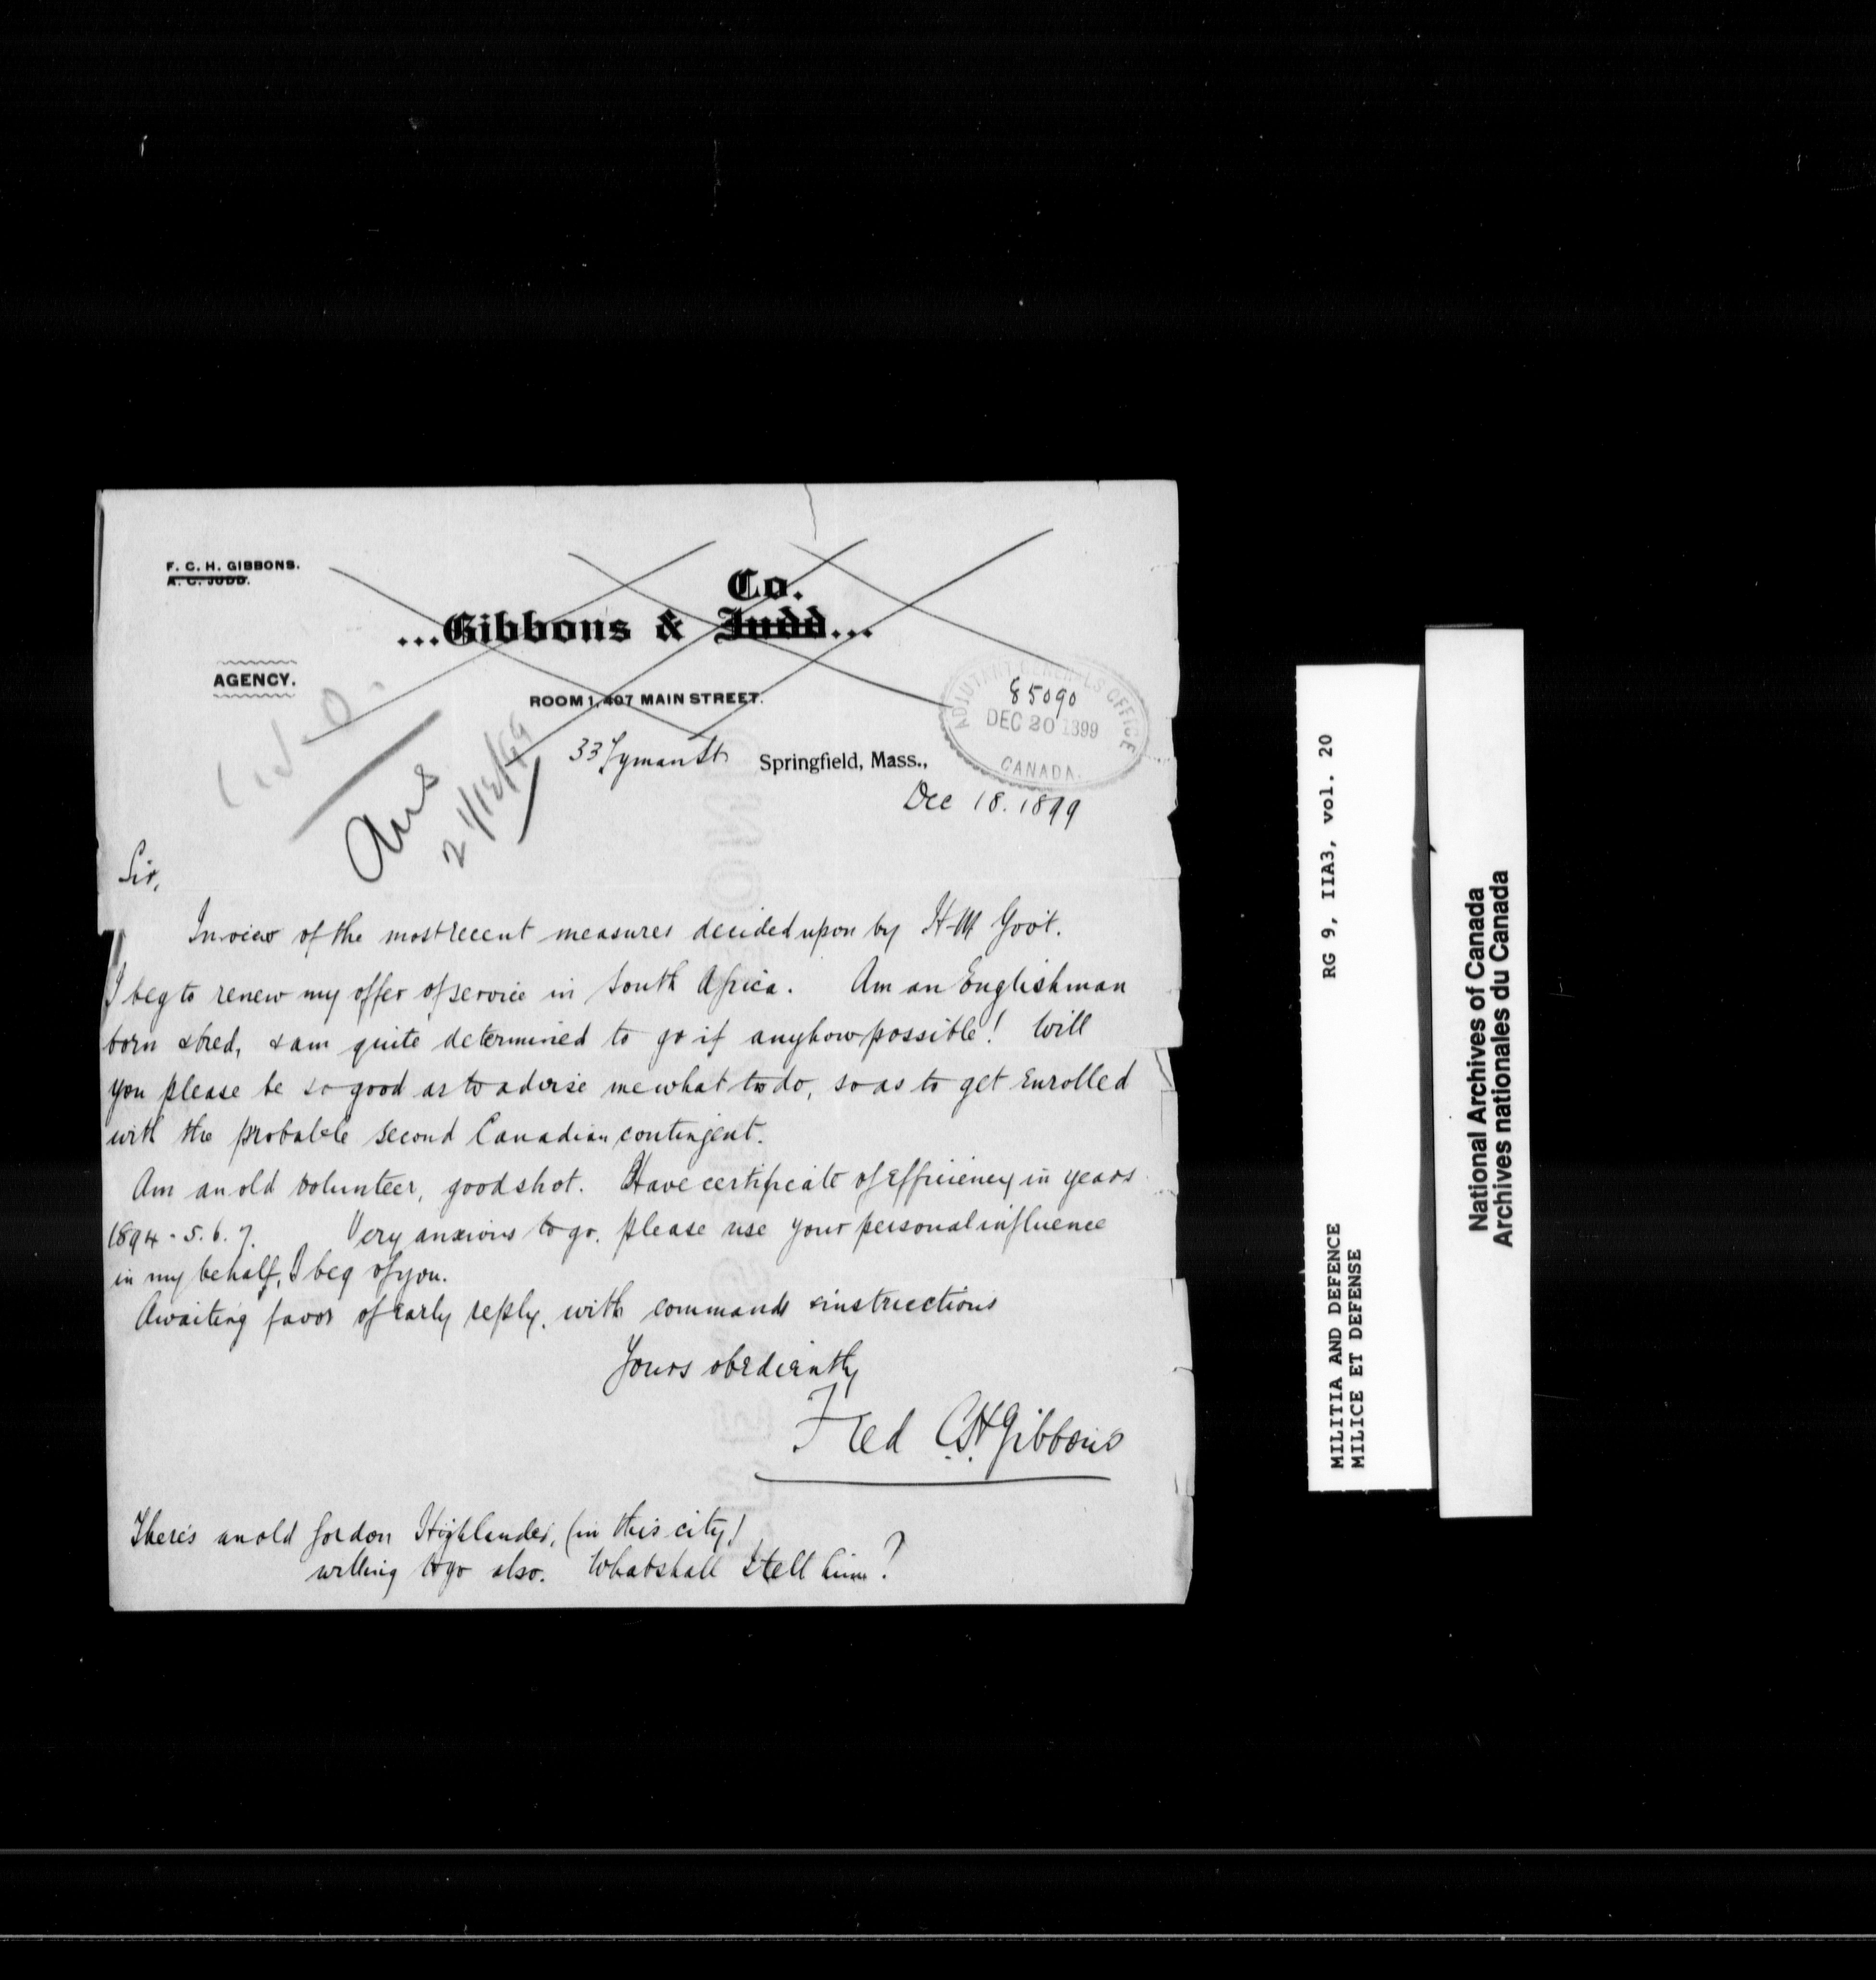 F. C. H. GIBBONS.
A. C. JUDD.
Co.
...Gibbons & Judd...
AGENCY.
ROOM 1, 407 MAIN STREET.
ADJUTANT GENERAL'S OFFICE
85090
DEC 20 1899
CANADA.
Ans
21/12/99
33 Lyman St Springfield, Mass.,
Dec 18. 1899
Sir,
In view of the most recent measures decided upon by H M Govt.
I beg to renew my offer of service in South Africa. Am an Englishman
born & bred, & am quite determined to go if anyhow possible! Will
you please be so good as to advise me what to do, so as to get enrolled
with the probable second Canadian contingent.
Am an old volunteer, good shot. Have certificate of efficiency in years
1894 - 5. 6. 7. Very anxious to go. please use your personal influence
in my behalf, I beg of you.
Awaiting favor of early reply, with commands & instructions
Yours obediently
Fred C.H. Gibbons
There's an old Gordon Highlander, (in this city)
willing to go also. What shall I tell him?
MILITIA AND DEFENCE RG 9, IIA3, vol. 20
MILICE ET DEFENSE
National Archives of Canada
Archives nationales du Canada